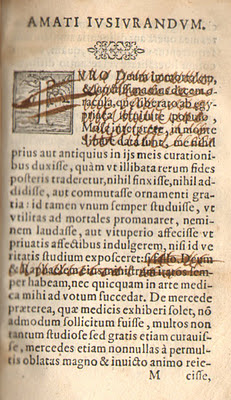 AMATI IVSIVRANDVM.
VRO Deum immortalem,
tacula, quæ liberato ab ægy-
ptiaca seruitute populo,
Moise interprete, in monte
data sunt, me nihil
prius aut antiquius in ijs meis curationi-
bus duxisse, quàm vt illibata rerum fides
posteris traderetur, nihil finxisse, nihil ad-
didisse, aut commutasse ornamenti gra-
tia: id tamen vnum semper studuisse, vt
vtilitas ad mortales promanaret, nemi-
nem laudasse, aut vituperio affecisse vt
priuatis affectibus indulgerem, nisi id ve
ritatis studium exposceret:
per habeam, nec quicquam in arte medi-
ca mihi ad votum succedat. De mercede
præterea, quæ medicis exhiberi solet, nō
admodum sollicitum fuisse, multos non
tantum studiose sed gratis etiam curauis-
se, mercedes etiam nonnullas à permul-
tis oblatas magno & inuicto animo reie-
M cisse,